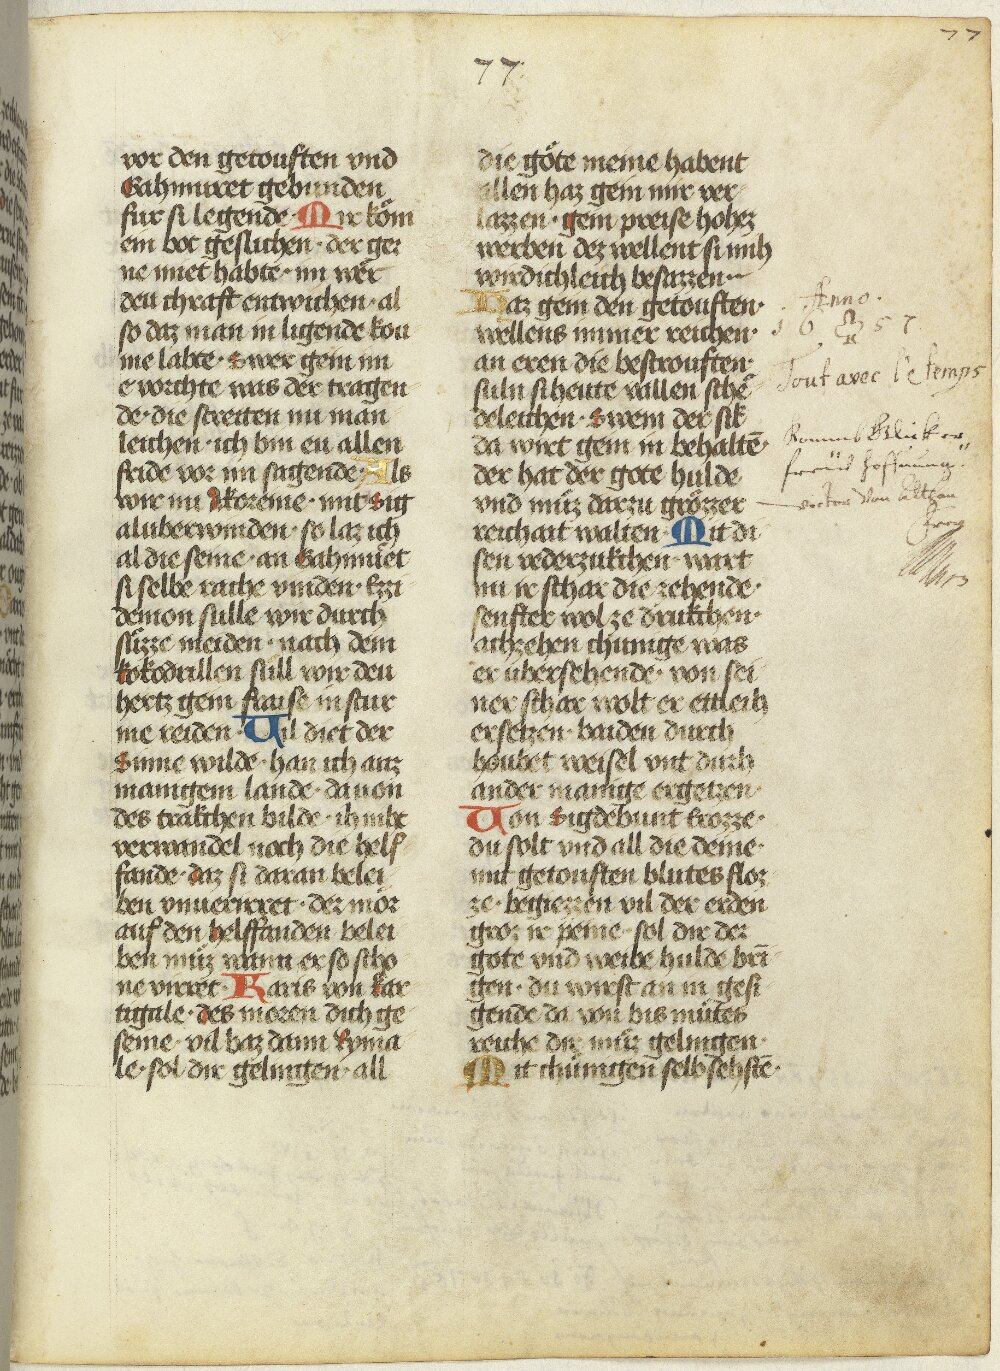 77
77
vor den getouften vnd
Gahmuret gebunden
fur si legende · Mir köm
ein bot geslichen · der ger
ne miet habte · im wër
deu chraft entwichen · al
so daz man in ligende kou
me labte · Swer gein im
e vorchte was der tragen
de · die streiten nu man
leichen · ich bin eu allen
fride vor im sagende · Als
wir nu Akoreine · mit Sig
al uberwinden · so laz ich
al die seine · an Gahmuret
si selbe rache vinden · Ezzi
demon sulle wir durch
süzze meiden · nach dem
kokodrillen süll wir deu
hertz gein fraise in stur
me reiden · Vil diet der
Sinne wilde · han ich auz
manigem lande · da von
des träkchen bilde · ih niht
verwandel noch die helf
fande · daz si daran belei
ben vnuerirret · der mör
auf den helffanden belei
ben müz wann er so scho
ne virret · Karis von kar
tigale · des moren dich ge
seine · vil baz dann kyma
le · sol dir gelingen · all
die göte meine habent
allen haz gein mir ver
lazzen · gein preise hohez
werben dez wellent si mih
wirdichleich besazzen ·
Haz gein den getouften ·
wellens immer reichen ·
an eren die bestrouften ·
suln si heute vallen schē
deleichen · Swem der sik
da wirt gein in behaltē ·
der hat der gote hulde
vnd müz darzu grözzer
reichait walten · Mit di
sen vederzukchen wart
nu ir schar die zehende ·
senfter wol ze drukchen ·
achzehen chunige was
er ubersehende · von sei
ner schar wolt er ettleih
ersetzen · baiden durch
houbet weisel vnt durh
ander manige ergetzen ·
Von Sigdebunt krozze ·
du solt vnd all die deine ·
mit getouften blutes floz
ze · begiezzen vil der erden
groz ir peine · sol dir der
gote vnd weibe hulde brī
gen · du wirst an in gesi
gende da von bis mütes
reiche dir müz gelingen ·
Mit chünigen selb sehstē ·
Anno ·
16 57
Tout avec le temps